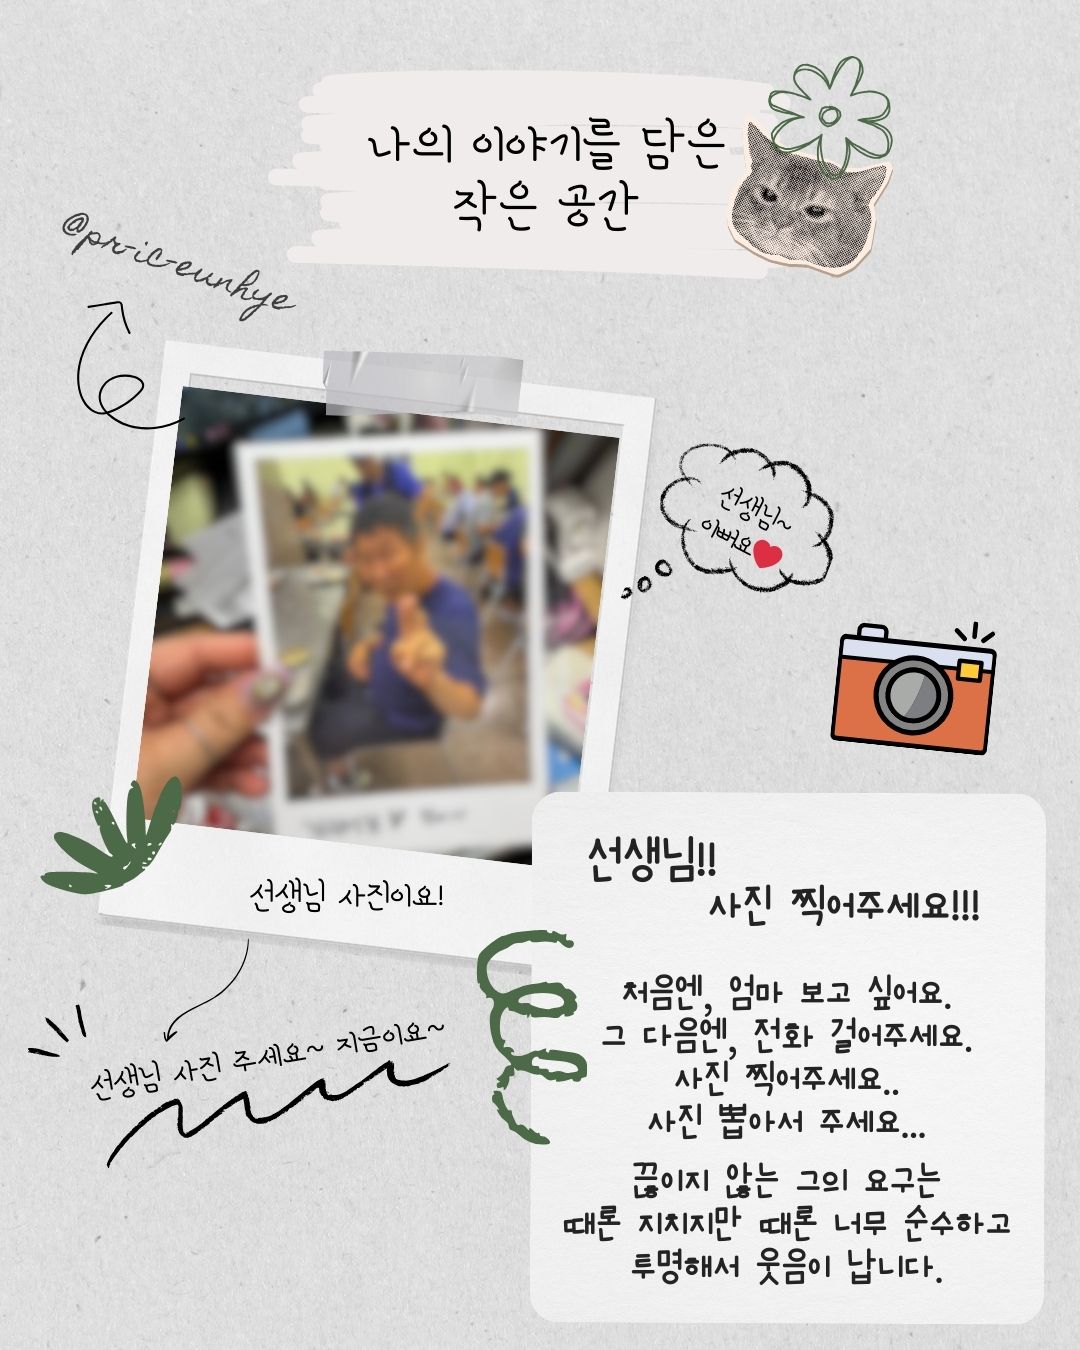 나의 이야기를 담은
작은 공간
@pr-ic-eunhye
선생님~
이뻐요
선생님 사진이요!
선생님 사진 주세요~ 지금이요~
선생님!!
사진 찍어주세요!!!
처음엔, 엄마 보고 싶어요.
그 다음엔, 전화 걸어주세요.
사진 찍어주세요..
사진 뽑아서 주세요...
끊이지 않는 그의 요구는
때론 지치지만 때론 너무 순수하고
투명해서 웃음이 납니다.